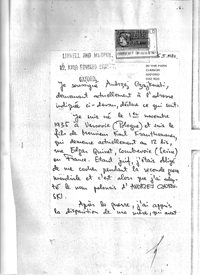 LINNELL AND MURPHY,
12, KING EDWARD STREET
OXFORD
Je soussigné Andrzej
demeurant actuellement à l'adresse
indiquée ci-dessus, déclare ce qui suit:
Je suis né le 1er novembre
1935 à Varsovie (Pologne) et suis le
fils de Monsieur Karl Krauthammer,
qui demeure actuellement au 12 bis,
rue Edgar Quinet, Courbevoie (Seine)
en France. Etant juif, j'étais obligé
de me cacher pendant la seconde guerre
mondiale et c'est alors que j'ai
le nom polonais d'ANDRZEJ
SKI.
Après la guerre, j'ai appris
la disparition de ma mère, qui avait